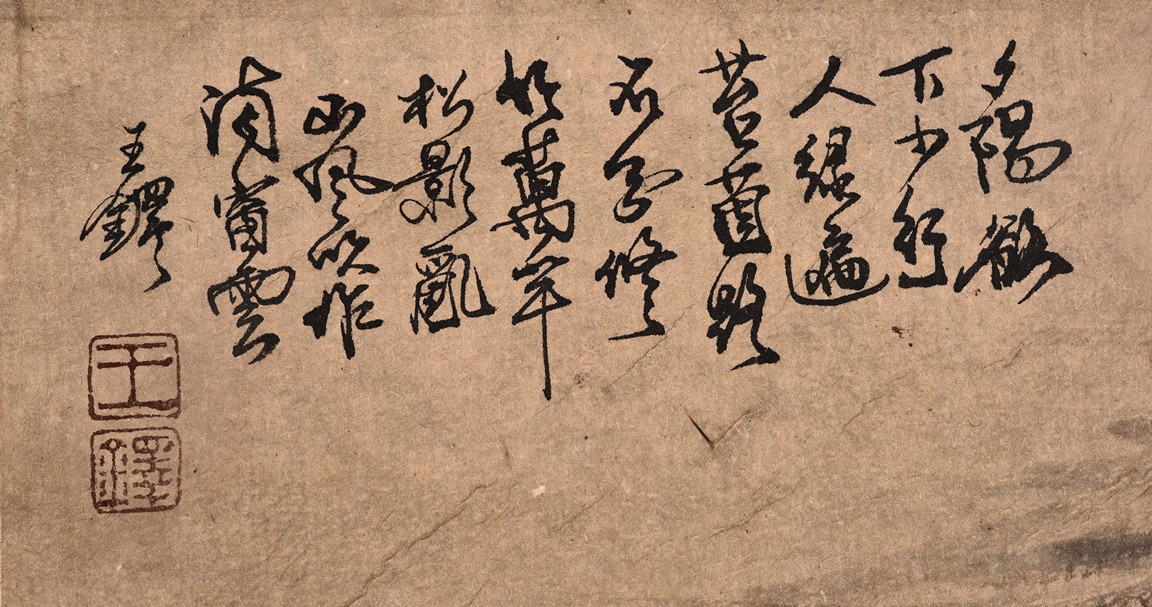 夕陽欲
下少行
人綠遍
苔茵路
不分修
竹萬竿
松影亂
山風吹作
滿窗雲
王鐸
王
鐸